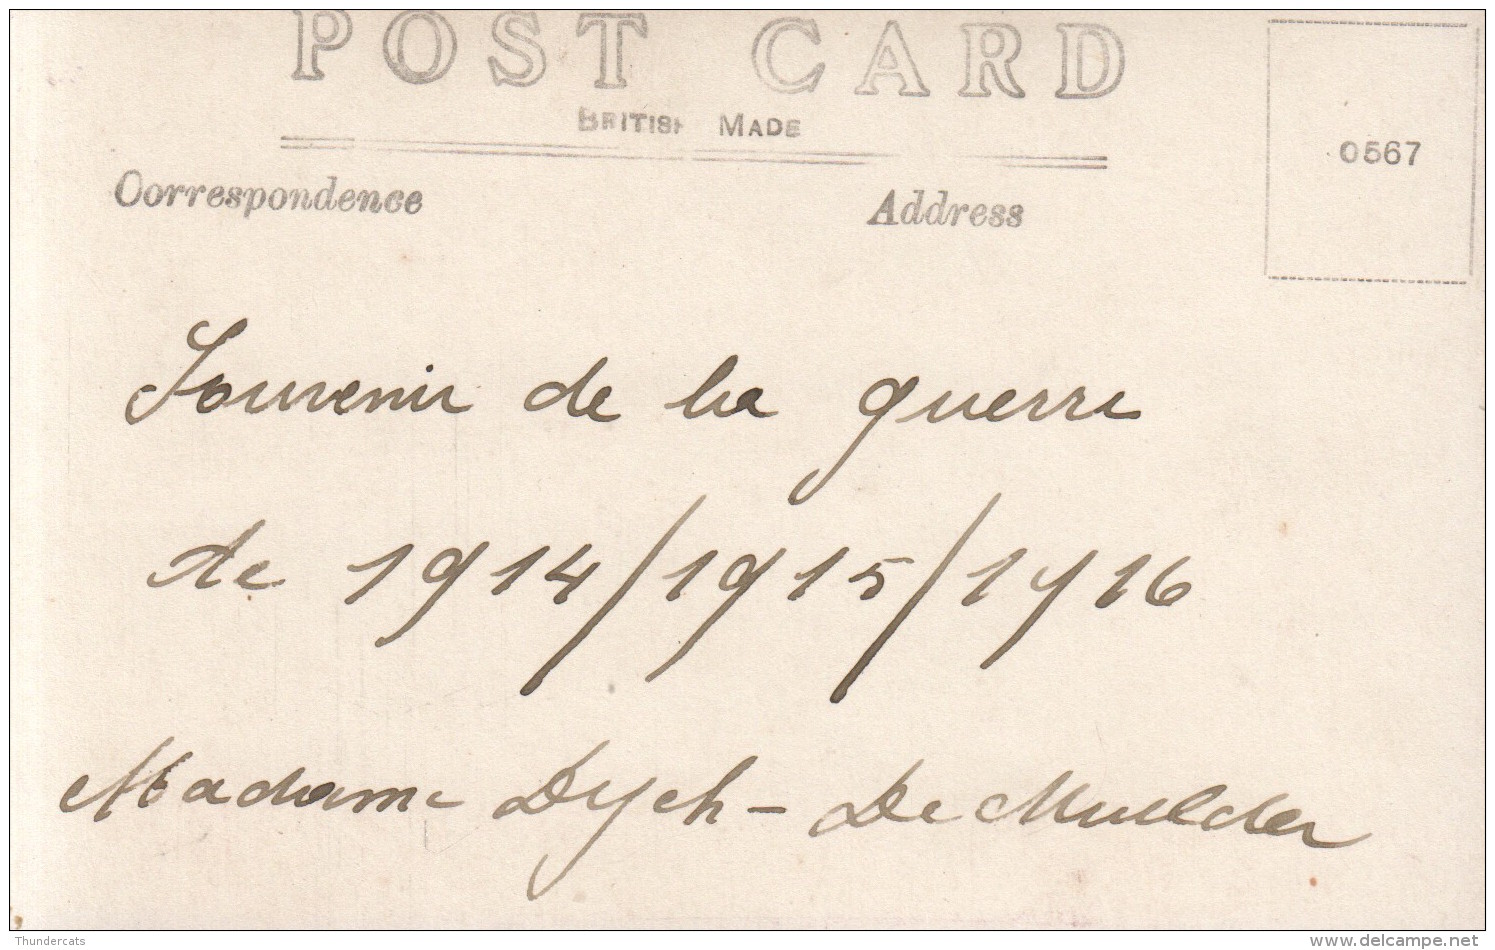 POST CARD
BRITISH MADE
0567
Correspondence
Address
Souvenir de la guerre
de 1914/1915/1916
Madame Dych - De Mulder
Thundercats
www.delcampe.net